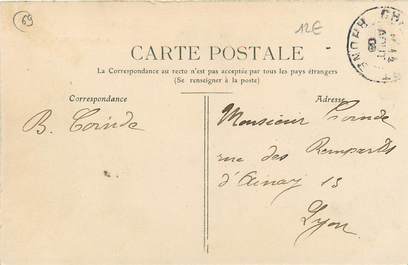 69
12€
CARTE POSTALE
La Correspondance au recto n'est pas acceptée par tous les pays étrangers
(Se renseigner à la poste)
Correspondance
Adresse
B. Coindre
Monsieur Coindre
rue des Remparts
d'Ainay 13
Lyon
RHONE
AOUT
08